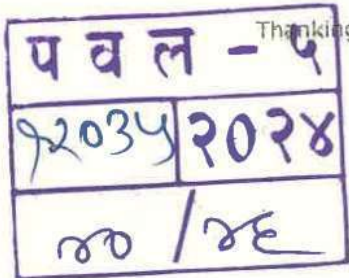 Thanking
पवल - ५
१२०३५ २०२४
४० / ४६